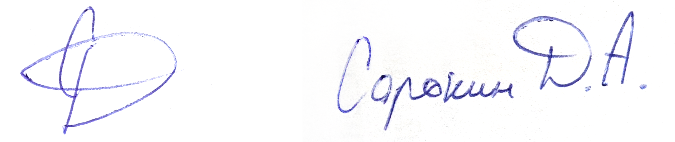 Сарокин Д.А.